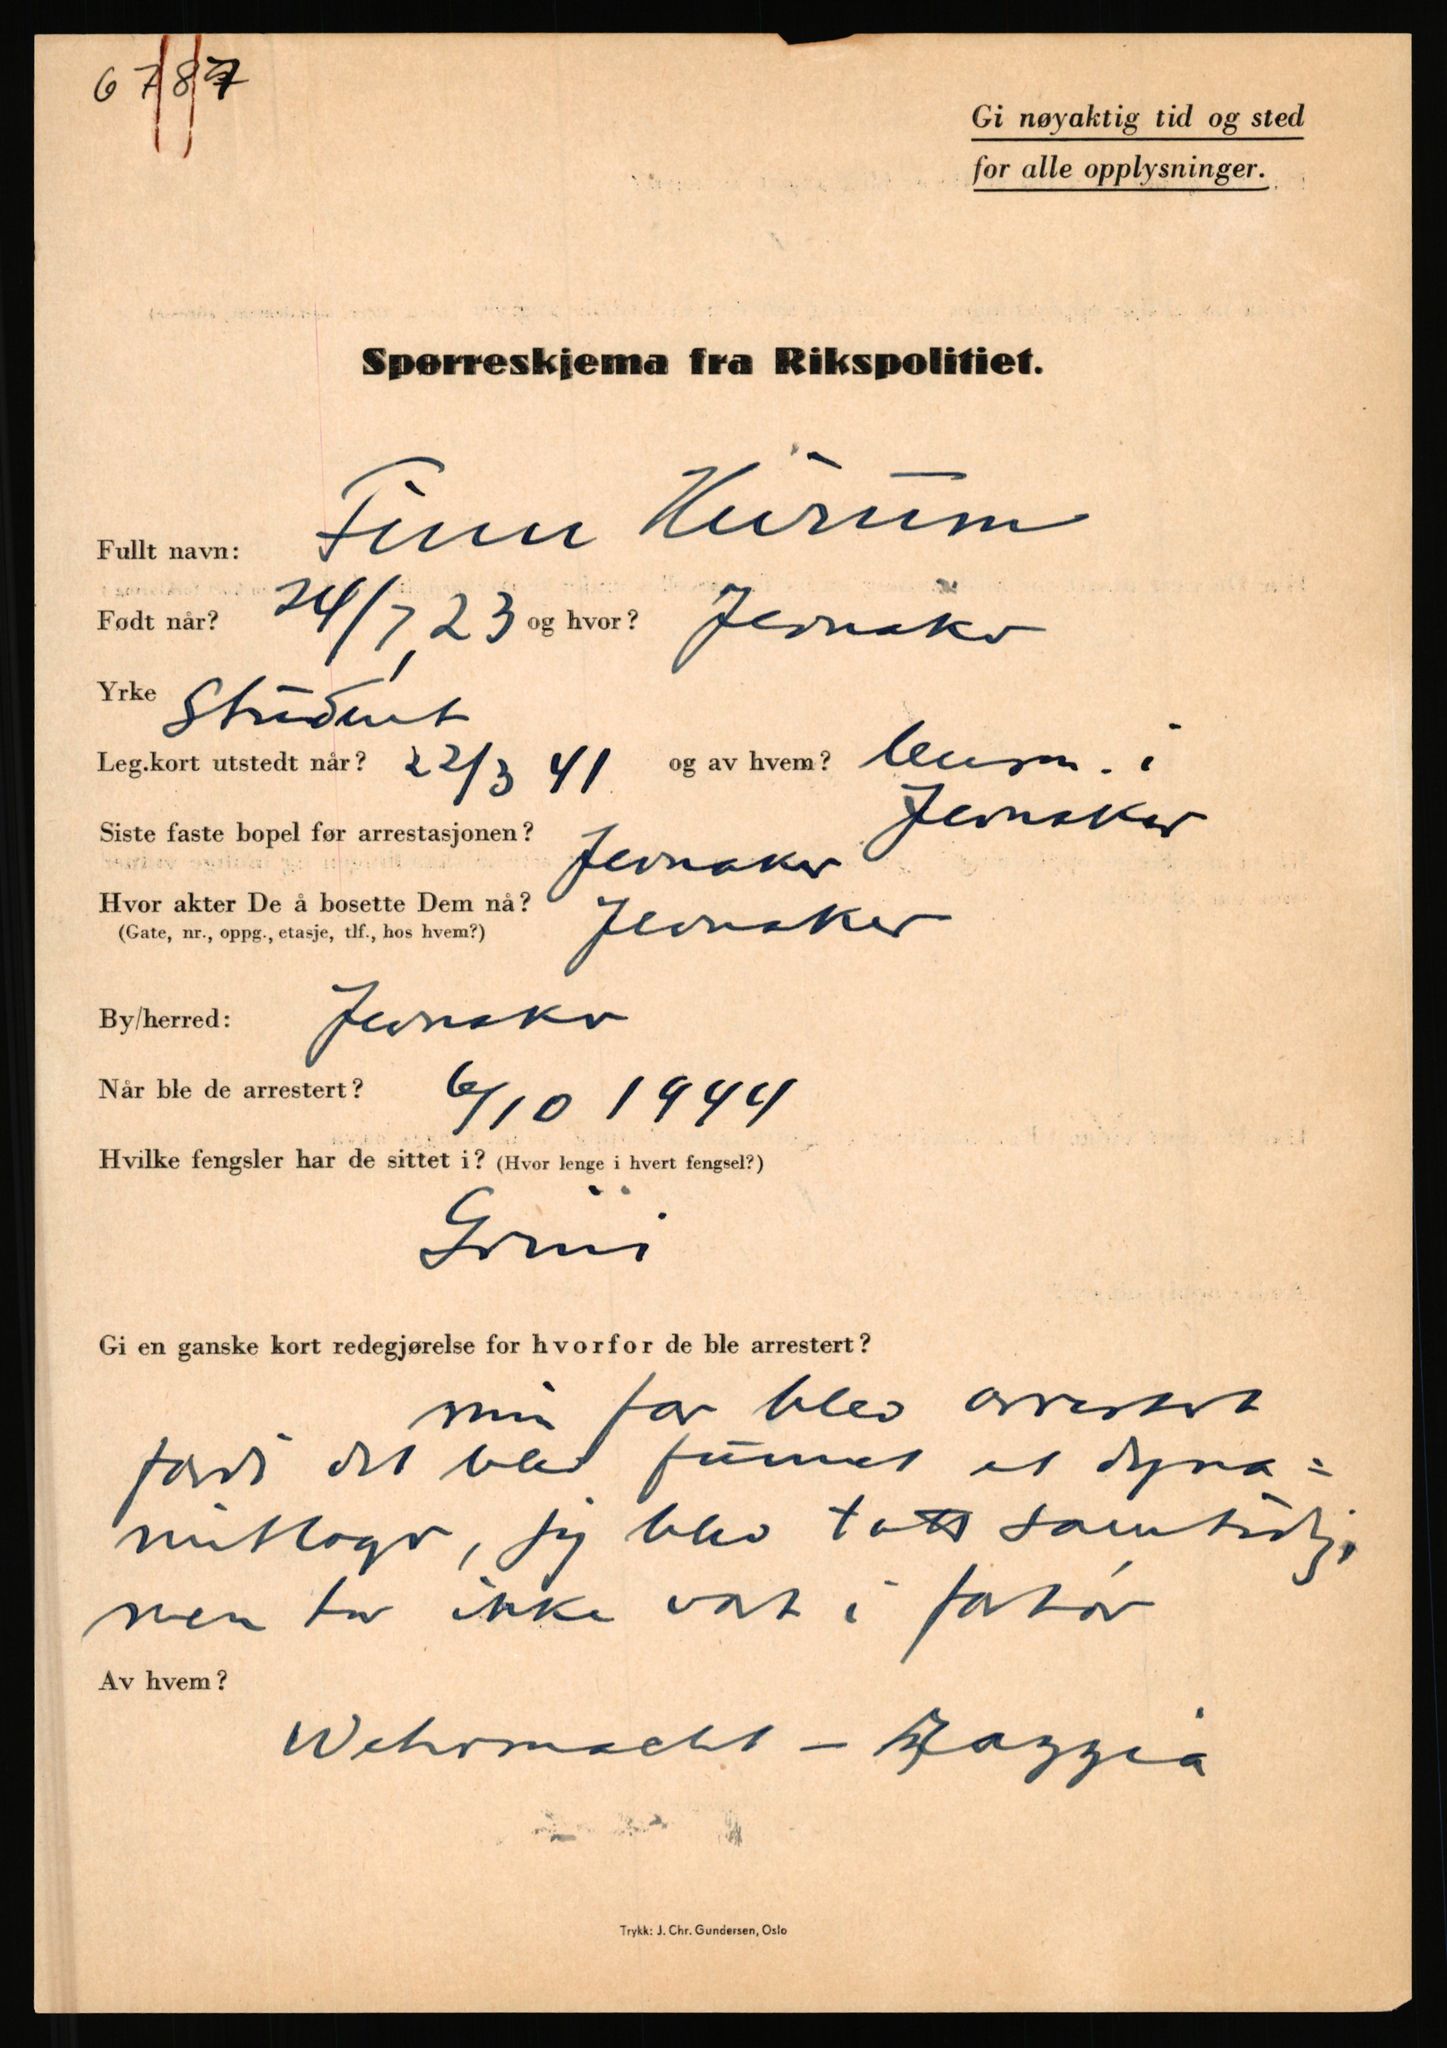 6787
Gi nøyaktig tid og sted
for alle opplysninger.
Spørreskjema fra Rikspolitiet.
Fullt navn: Finn Hurum
Født når? 24/7, 23 og hvor? Jevnaker
Yrke Student
Leg.kort utstedt når? 22/3 41 og av hvem? i
Jevnaker
Siste faste bopel før arrestasjonen? Jevnaker
Hvor akter De å bosette Dem nå? Jevnaker
(Gate, nr., oppg., etasje, tlf., hos hvem?)
By/herred: Jevnaker
Når ble de arrestert? 6/10 1944
Hvilke fengsler har de sittet i? (Hvor lenge i hvert fengsel?)
Grini
Gi en ganske kort redegjørelse for hvorfor de ble arrestert?
min far blev arrestert
fordi det blev funnet et dyna=
mitlager, jeg blev tatt samtidig,
men har ikke vært i forhør
Av hvem?
Wehrmacht - Razzia
Trykk: J. Chr. Gundersen, Oslo